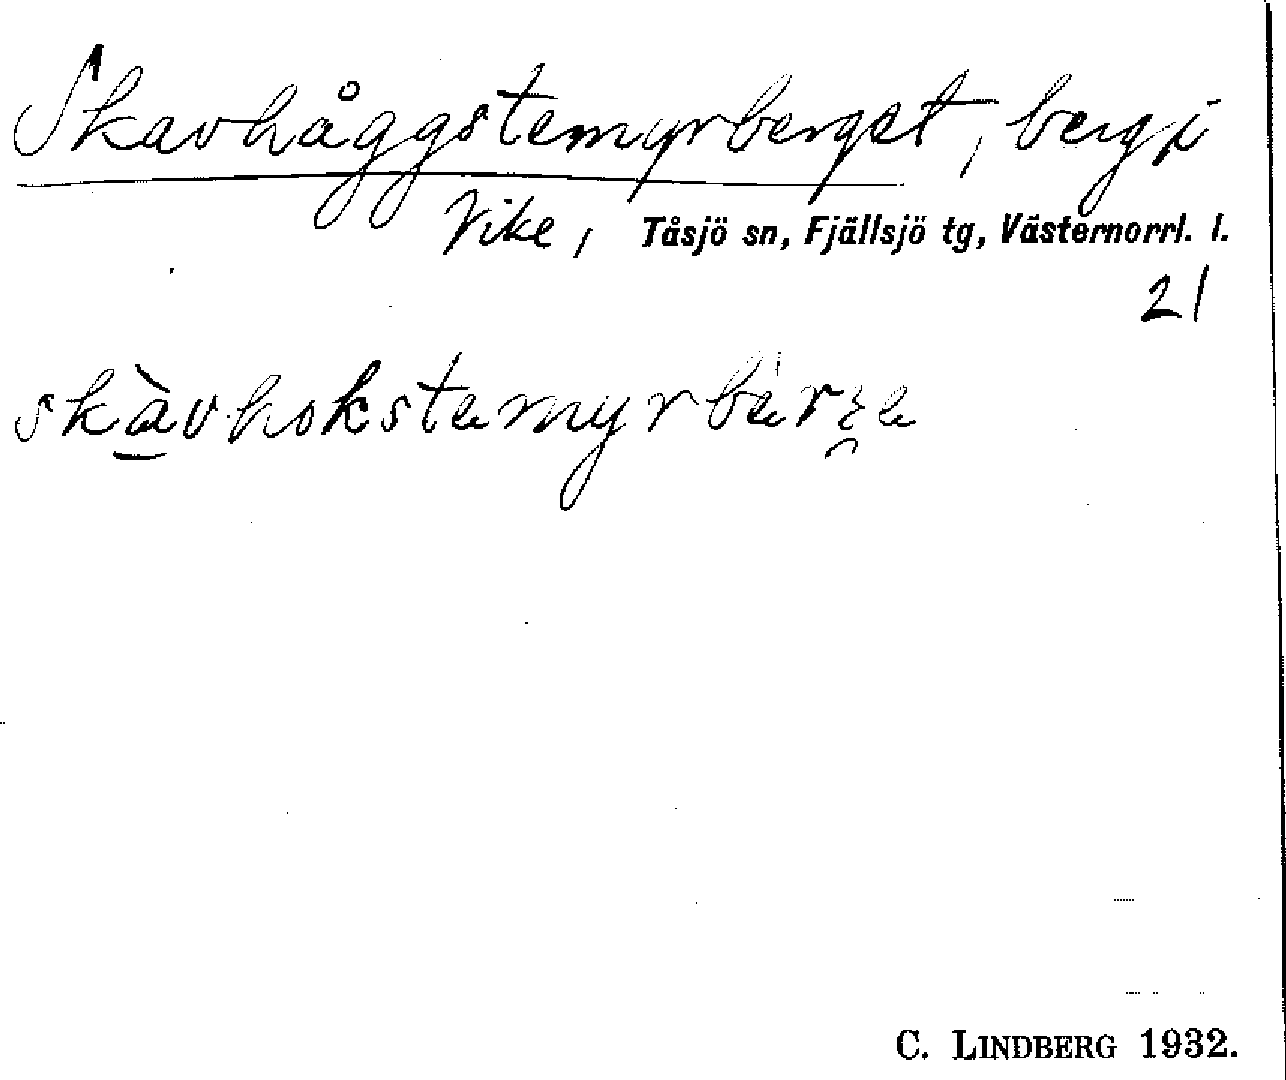 Skavhåggstemyrberget, berg i
Vike, Tåsjö sn, Fjällsjö tg, Västernorrl. l.
21
skàvhokstemyrbärʒe
C. LINDBERG 1932.